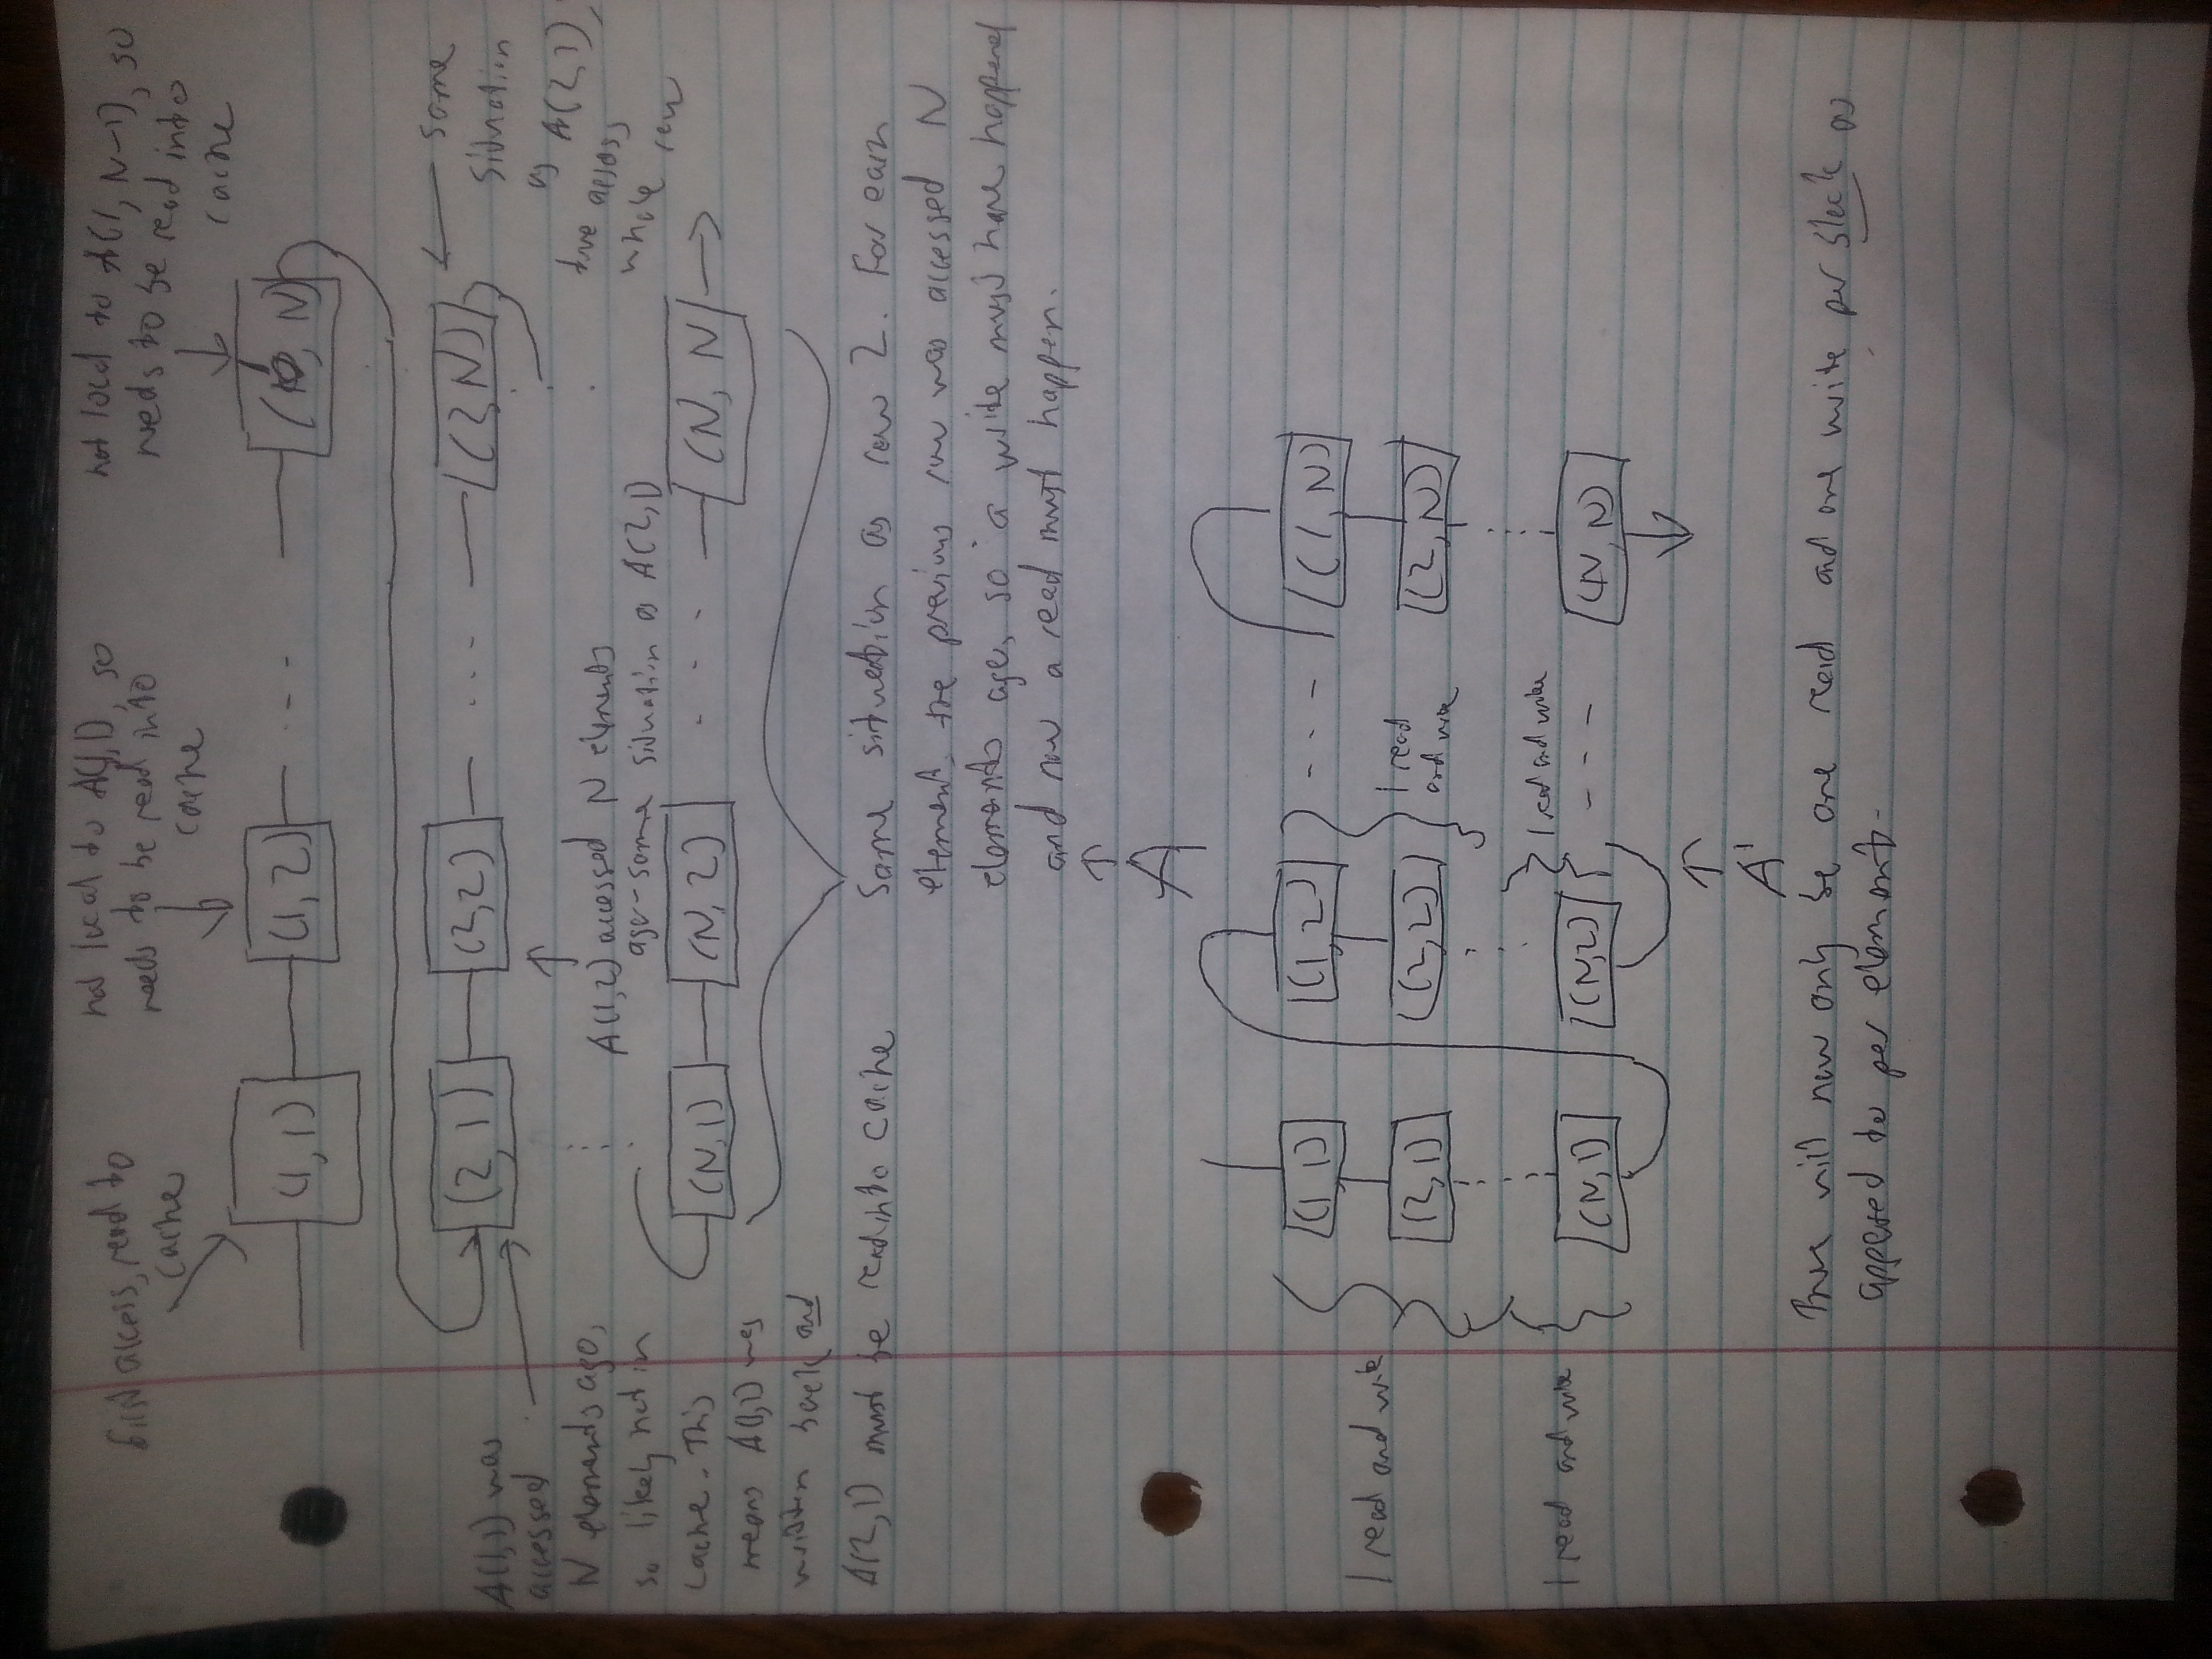 first access, read to
cache
not local to A(1,1), so
needs to be read into
cache
not local to A(1, N-1), so
needs to be read into
cache
(1,1)
(1,2)
- - -
( , N)
(2,1)
(2,2)
. . .
(2,N)
A(1,1) was
accessed
N elements ago,
so likely not in
cache. This
means A(1,1) was
written back and
A(2,1) must be read into cache
A(1,2) accessed N elements
ago - same situation as A(2,1)
same
situation
as A(2,1),
true across
whole row
(N,1)
(N,2)
. . .
(N, N)
Same situation as row 2. For each
element, the previous row was accessed N
elements ago, so a write must have happened
and now a read must happen.
A
(1,1)
(1,2)
- - -
(1,N)
1 read and write
(2,1)
(2,2)
1 read
and write
(2,N)
1 read and write
(N,1)
(N,2)
1 read and write
- - -
(N,N)
A'
There will now only be one read and one write per block as
opposed to per element.